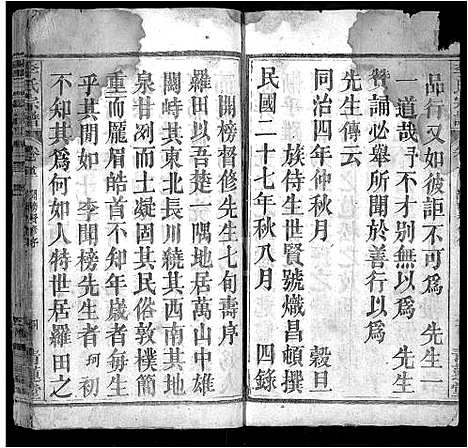 品行又如彼詎不可爲　先生一
一道哉予不才别無以爲　先生
贊誦必舉所善行以爲
先生傳云
同治四年仲秋月　　穀旦
族侍生世賢號熾昌頓撰
民國二十七年秋八月　四錄
開榜督修先生七旬壽序
羅田隸吾楚一隅地居萬山中雄
關峙其東北長川繞其西南其地
泉甘而土凝固其民俗敦樸簡
重而龐眉皓首不知年歲者每出
乎其間如　李開榜先生者珂初
不知其爲何如人特世居羅田之
李氏宗譜　卷首　開榜督修序